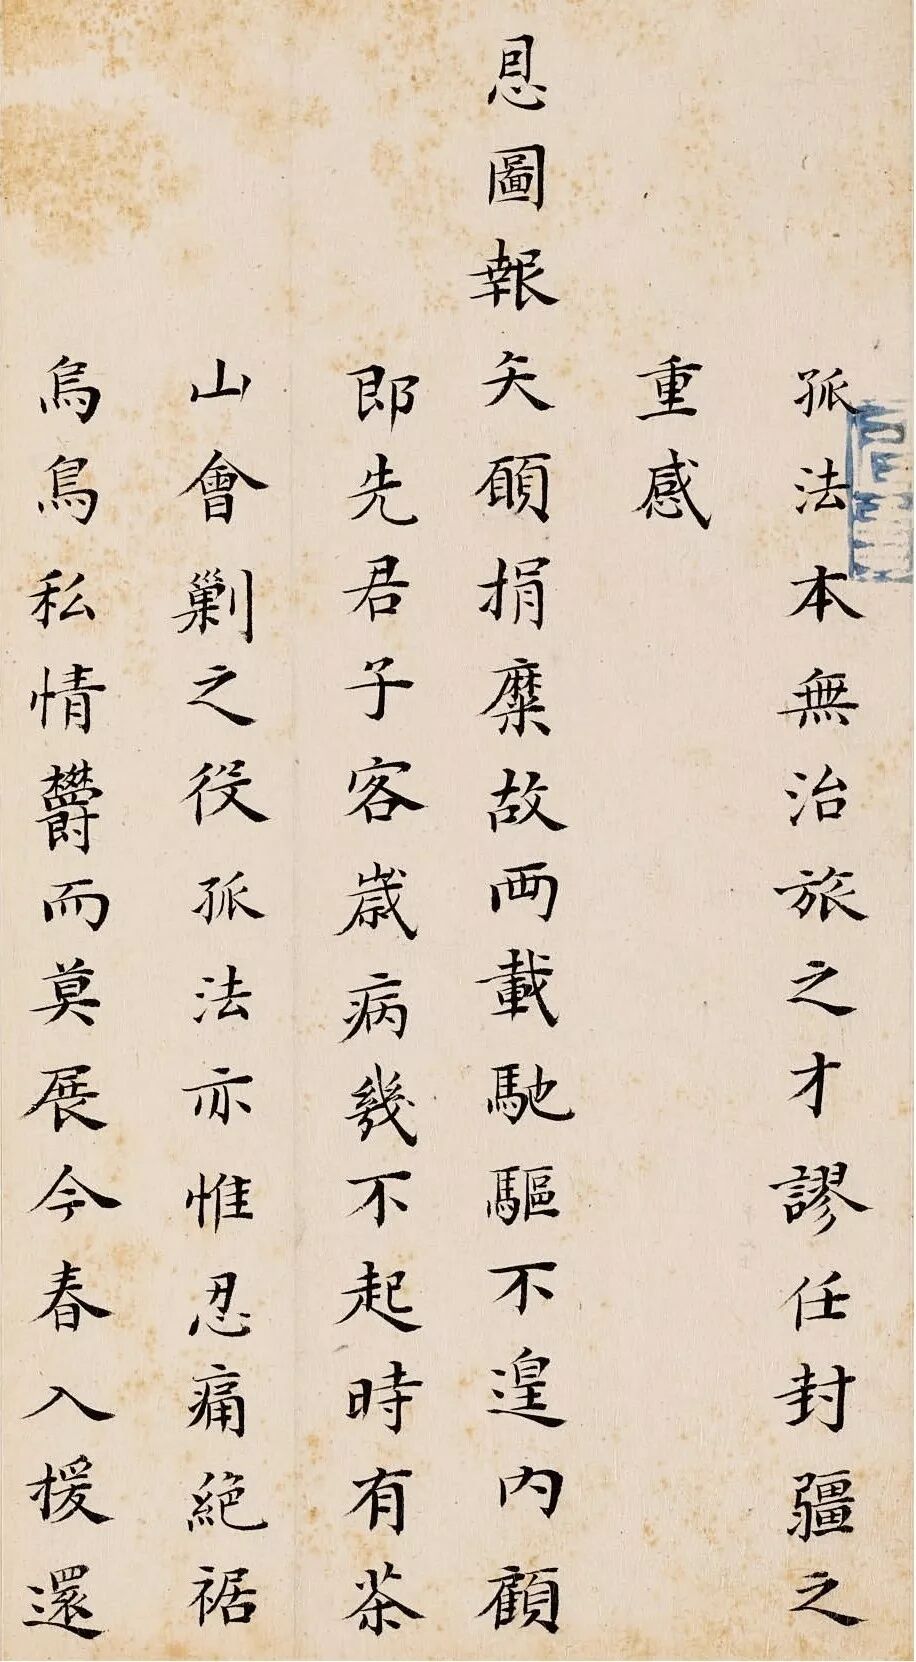 孤法本無治旅之才謬任封疆之
重感
恩圖報矢願捐糜故两載馳驅不遑内顧
即先君子客歲病幾不起時有茶
山會剿之役孤法亦惟忍痛絶裾
烏鳥私情欝而莫展今春入援還